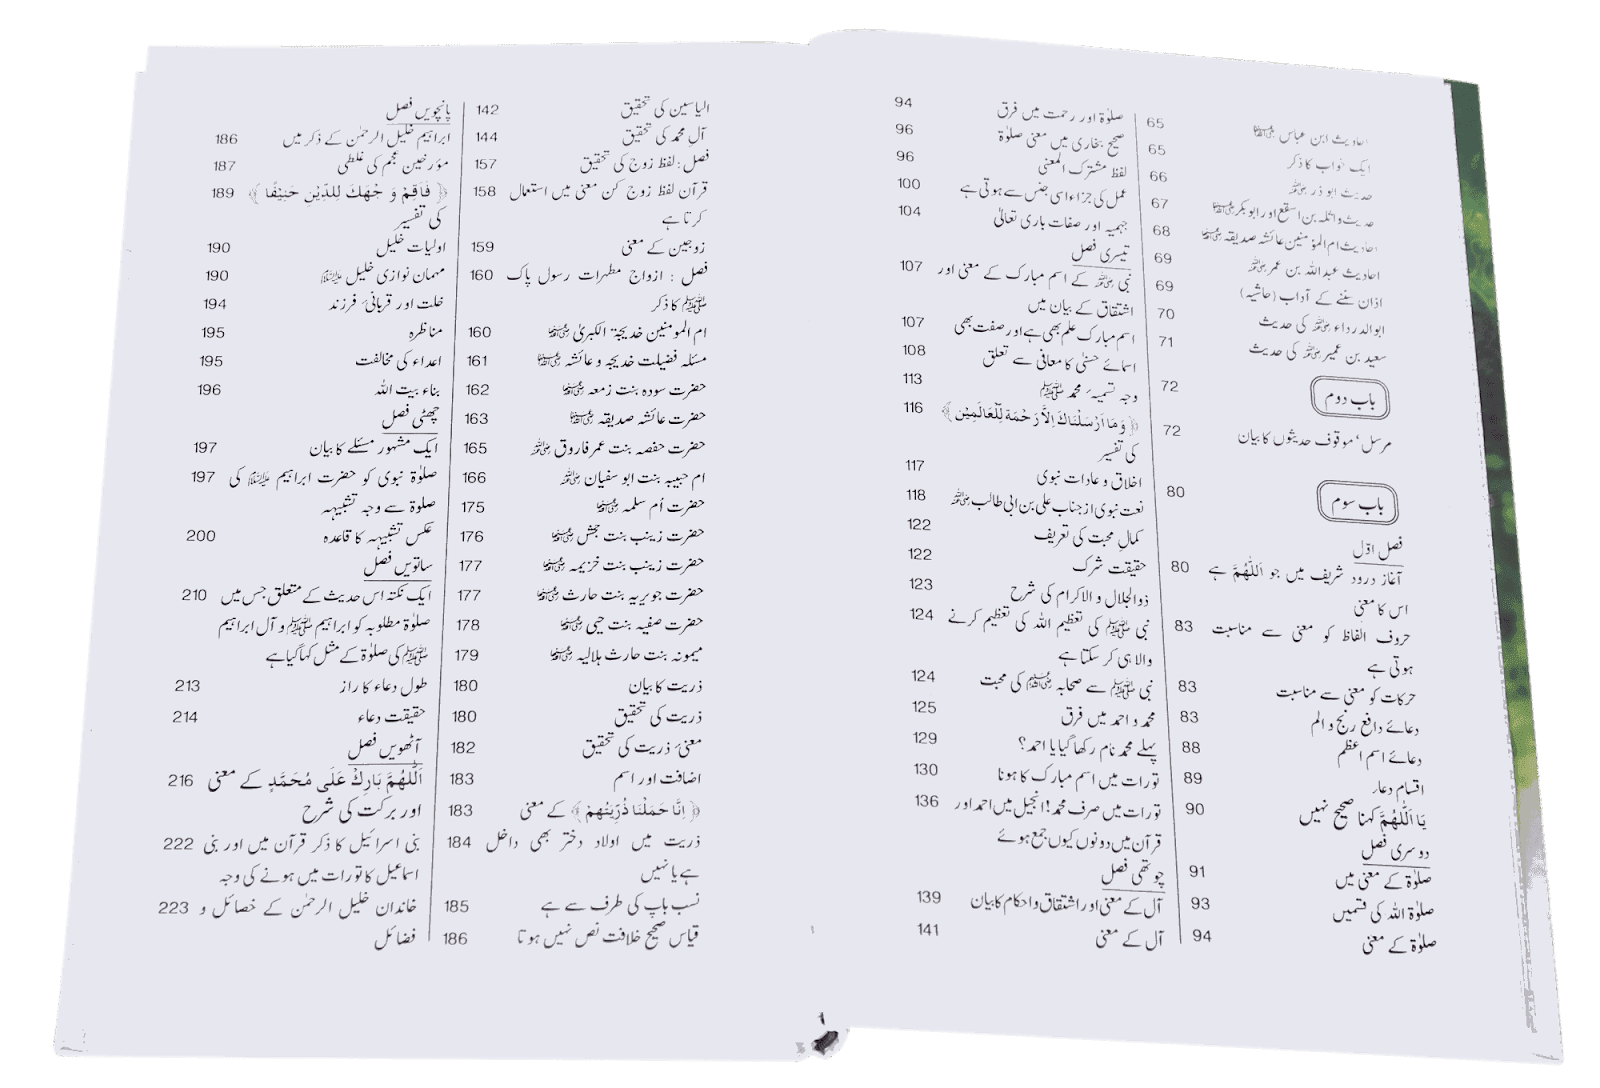 احادیث ابن عباس ؓ 65
ایک خواب کا ذکر 65
حدیث ابوذر ؓ 66
حدیث واثلہ بن اسقع اور ابوبکر ؓ 67
احادیث ام المؤمنین عائشہ صدیقہ ؓ 68
احادیث عبداللہ بن عمر ؓ 69
اذان سننے کے آداب (حاشیہ) 69
ابوالدرداء ؓ کی حدیث 70
سعید بن عمیر ؓ کی حدیث 71
باب دوم 72
مرسل‘ موقوف حدیثوں کا بیان 72
باب سوم 80
فصل اوّل
آغاز درود شریف میں جو اَللّٰهُمَّ ہے 80
اس کا معنیٰ
حروف الفاظ کو معنی سے مناسبت 83
ہوتی ہے
حرکات کو معنی سے مناسبت 83
دعائے دافع رنج و الم 83
دعائے اسم اعظم 88
اقسام دعاء 89
یَا اَللّٰهُمَّ کہنا صحیح نہیں 90
دوسری فصل
صلوٰۃ کے معنی میں 91
صلوٰۃ اللہ کی قسمیں 93
صلوٰۃ کے معنی 94
صلوٰۃ اور رحمت میں فرق 94
صحیح بخاری میں معنی صلوٰۃ 96
لفظ مشترک المعنی 96
عمل کی جزاء اسی جنس سے ہوتی ہے 100
جہمیہ اور صفات باری تعالیٰ 104
تیسری فصل
نبی ﷺ کے اسم مبارک کے معنی اور 107
اشتقاق کے بیان میں
اسم مبارک علم بھی ہے اور صفت بھی 107
اسمائے حسنیٰ کا معانی سے تعلق 108
وجہ تسمیہ ٔ محمد ﷺ 113
﴿ وَمَا اَرْسَلْنَاكَ اِلاَّ رَحْمَةً لِّلْعَالَمِیْن ﴾ 116
کی تفسیر
اخلاق و عادات نبوی 117
نعت نبوی از جناب علی بن ابی طالب ؓ 118
کمالِ محبت کی تعریف 122
حقیقت شرک 122
ذوالجلال والاکرام کی شرح 123
نبی ﷺ کی تعظیم اللہ کی تعظیم کرنے 124
والا ہی کر سکتا ہے
نبی ﷺ سے صحابہ ؓ کی محبت 124
محمد و احمد میں فرق 125
پہلے محمد نام رکھا گیا یا احمد؟ 129
تورات میں اسم مبارک کا ہونا 130
تورات میں صرف محمد! انجیل میں احمد اور 136
قرآن میں دونوں کیوں جمع ہوئے
چوتھی فصل
آل کے معنی اور اشتقاق و احکام کا بیان 139
آل کے معنی 141
الیاسین کی تحقیق 142
آلِ محمد کی تحقیق 144
فصل: لفظ زوج کی تحقیق 157
قرآن لفظ زوج کن معنی میں استعمال 158
کرتا ہے
زوجین کے معنی 159
فصل : ازواج مطہرات رسول پاک 160
ﷺ کا ذکر
ام المومنین خدیجۃ الکبریٰ ؓ 160
مسئلہ فضیلت خدیجہ و عائشہ ؓ 161
حضرت سودہ بنت زمعہ ؓ 162
حضرت عائشہ صدیقہ ؓ 163
حضرت حفصہ بنت عمر فاروق ؓ 165
ام حبیبہ بنت ابو سفیان ؓ 166
حضرت اُم سلمہ ؓ 175
حضرت زینب بنت جحش ؓ 176
حضرت زینب بنت خزیمہ ؓ 177
حضرت جویریہ بنت حارث ؓ 177
حضرت صفیہ بنت حیی ؓ 178
میمونہ بنت حارث ہلالیہ ؓ 179
ذریت کا بیان 180
ذریت کی تحقیق 180
معنیٔ ذریت کی تحقیق 182
اضافت اور اسم 183
﴿ اِنَّا حَمَلْنَا ذُرِّیَّتَهُمْ ﴾ کے معنی 183
ذریت میں اولاد دختر بھی داخل 184
ہے یا نہیں
نسب باپ کی طرف سے ہے 185
قیاس صحیح خلافت نص نہیں ہوتا 186
پانچویں فصل
ابراہیم خلیل الرحمٰن کے ذکر میں 186
مؤرخین عجم کی غلطی 187
﴿ فَاَقِمْ وَجْهَكَ لِلدِّیْنِ حَنِیْفًا ﴾ 189
کی تفسیر
اولیات خلیل 190
مہمان نوازی خلیل ﷺ 190
خلت اور قربانیٔ فرزند 194
مناظرہ 195
اعداء کی مخالفت 195
بناء بیت اللہ 196
چھٹی فصل
ایک مشہور مسئلے کا بیان 197
صلوٰۃ نبوی کو حضرت ابراہیم ﷺ کی 197
صلوۃ سے وجہ تشبیہہ
عکس تشبیہہ کا قاعدہ 200
ساتویں فصل
ایک نکتہ اس حدیث کے متعلق جس میں 210
صلوٰۃ مطلوبہ کو ابراہیم ﷺ و آل ابراہیم
ﷺ کی صلوٰۃ کے مثل کہا گیا ہے
طول دعاء کا راز 213
حقیقت دعاء 214
آٹھویں فصل
اَللّٰهُمَّ بَارِكْ عَلَی مُحَمَّدٍ کے معنی 216
اور برکت کی شرح
بنی اسرائیل کا ذکر قرآن میں اور بنی 222
اسماعیل کا تورات میں ہونے کی وجہ
خاندان خلیل الرحمٰن کے خصائل و 223
فضائل